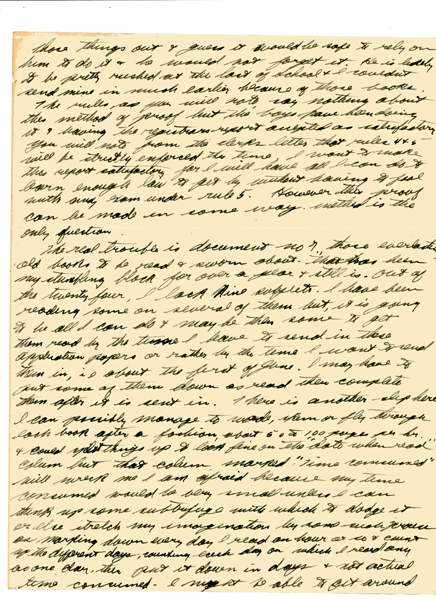 those things out & guess it would be safe to rely on
him to do it & he would not forget it. He is likely
to be pretty rushed at the last of school & I couldnt
send mine in much earlier because of those books.
The rules, as you will note say nothing about
this method of proof but the boys have been doing
it & having the registrars report accepted as satisfactory
You will note from the clerks letter that rules 4 & 5
will be strictly enforced this time. I want to make
this report satisfactory for I will have all I can do to
learn enough law to get by without having to fool
with any exam under rule 5. However this proof
can be made in some way. method is the
only question.
The real trouble is document no 7, those everlasting
old books to be read & sworn about. That has been
my stumbling block for over a year & still is. Out of
the twenty four, I lack nine complete. I have been
reading some on several of them but it is going
to be all I can do & maybe then some to get
them read by the time I have to send in these
application papers or rather by the time I want to send
them in, i.e. about the first of June. I may have to
put some of them down as read then complete
them after it is sent in. There is another slip here
I can possibly manage to wade, skim or flip through
each book after a fashion, about 50 to 100 pages per hr.
& could things up to look fine on the "date when read"
column but that column marked "Time consumed"
will wreck me I am afraid because my time
consumed would be very small unless I can
think up some subterfuge with which to dodge it
or else stretch my imagination by some such process
as marking down every day I read an hour or so & count
up the different days, counting each day on which I read any
as one day, then put it down in days & not actual
time consumed. I to be able to get around